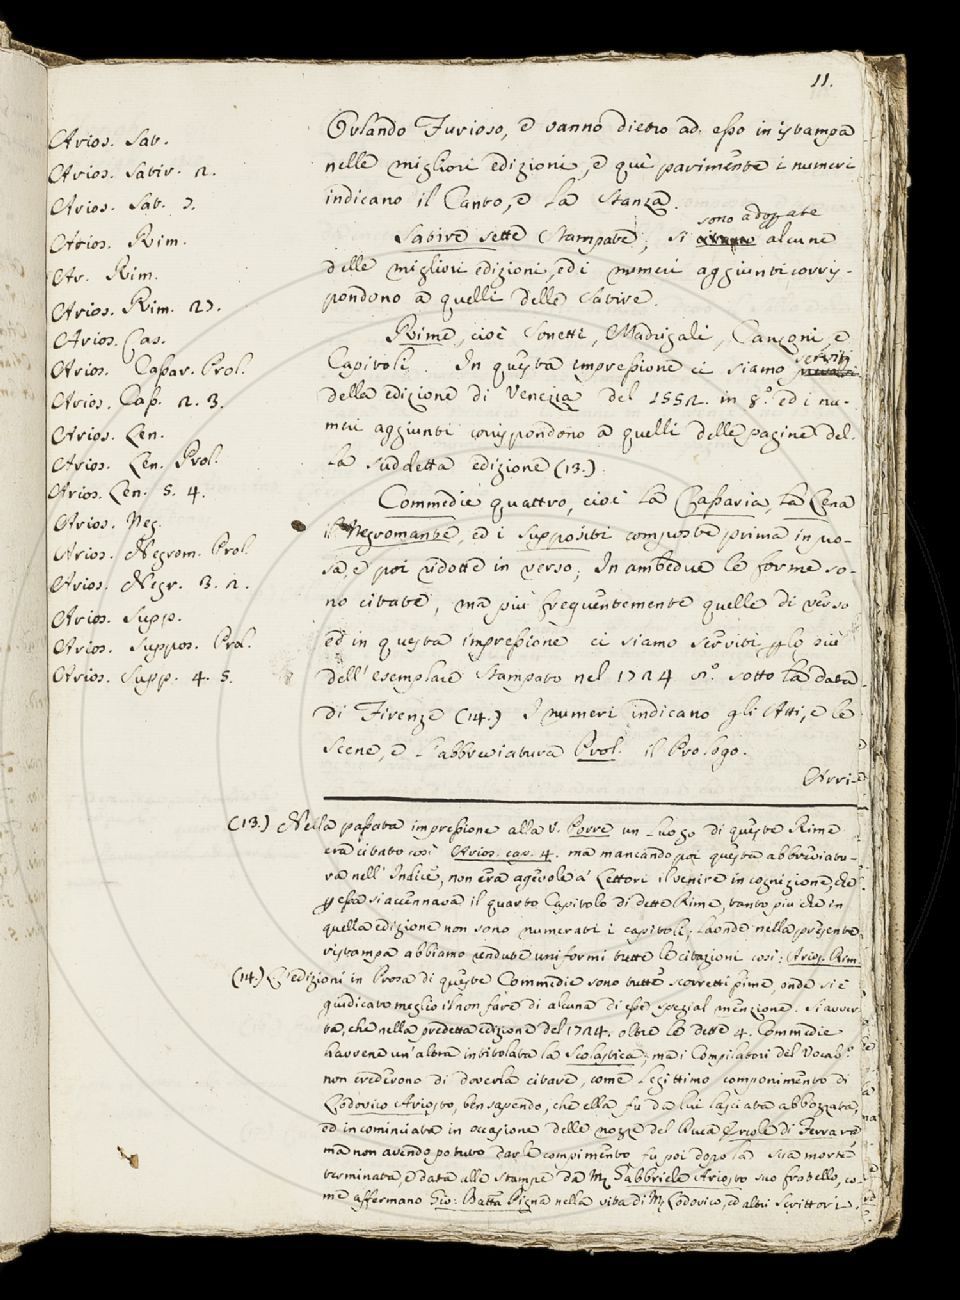 11.
Arios. Sat.
Arios. Satir. 2.
Arios. Sat. 3.
Arios. Rim.
Ar. Rim.
Arios. Rim. 23.
Arios. Cas.
Arios. Cassar. Prol.
Arios. Cas. 2. 3.
Arios. Len.
Arios. Len. Prol.
Arios. Len. 5. 4.
Arios. Neg.
Arios. Negrom. Prol.
Arios. Negr. 3. 2.
Arios. Supp.
Arios. Suppos. Prol.
Arios. Supp. 4. 5.
Orlando Furioso, e vanno dietro ad esso in istampa
nelle migliori edizioni, e quì parimente i numeri
indicano il Canto, e la Stanza.
sono adoprate
Satire sette Stampate; si alcune
delle migliori edizioni, ed i numeri aggiunti corris-
pondono a quelli delle Satire.
Rime, cioè Sonetti, Madrigali, Canzoni, e
serviti
Capitoli. In questa impressione ci siamo
della edizione di Venezia del 1552. in 8.° ed i nu-
meri aggiunti corrispondono a quelli delle pagine del-
la suddetta edizione (13.).
Commedie quattro, cioè la Cassaria, la Lena
il Negromante, ed i Suppositi composte prima in pro-
sa, e poi ridotte in verso; In ambedue le forme so-
no citate, ma più frequentemente quelle di verso
ed in questa impressione ci siamo serviti, plo più
dell' esemplare Stampato nel 1724 8.° sotto la data
di Firenze (14.) I numeri indicano gli Atti, e le
Scene, e l'abbreviatura Prol. il Prologo.
Arri-
(13.) Nella passata impressione alla V. Porre un luogo di queste Rime
era citato così Arios. cap. 4. ma mancando poi questa abbreviatu-
ra nell' Indice, non era agevole a' Lettori il venire in cognizione, che
p essa si accennava il quarto Capitolo di dette Rime, tanto più che in
quella edizione non sono numerati i capitoli; laonde nella presente
ristampa abbiamo rendute uniformi tutte le citazioni così: Arios. Rim.
(14.) L'edizioni in Prosa di queste Commedie sono tutte scorrettissime, onde si è
giudicato meglio il non fare di alcuna di esse spezial menzione. Si avver-
ta, che nella predetta edizione del 1724. oltre le dette 4. Commedie
havvene un' altra intitolata la Scolastica; ma i Compilatori del Vocab.°
non crederono di doverla citare, come legittimo componimento di
Lodovico Ariosto, ben sapendo, che ella fu da lui lasciata abbozzata,
ed incominciata in occasione delle nozze del Duca Ercole di Ferrara
ma non avendo potuto darle compimento fu poi dopo la sua morte
terminata, e data alle stampe da M. Gabbriele Ariosto suo fratello, co-
me affermano Gio: Batta Pigna nella vita di M. Lodovico, ed altri Scrittori.